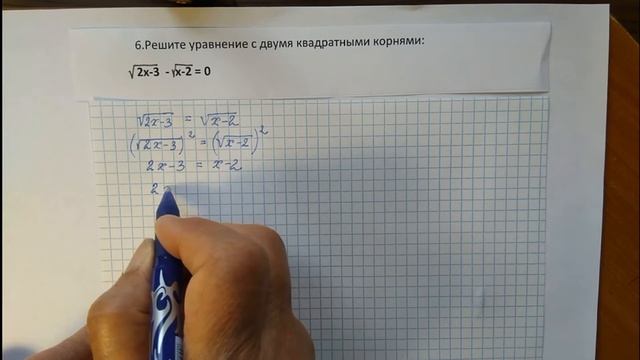 6.Решите уравнение с двумя квадратными корнями:
√2x-3 -√x-2 = 0
√2x-3 = √x-2
(√2x-3)² = (√x-2)²
2x-3 = x-2
2